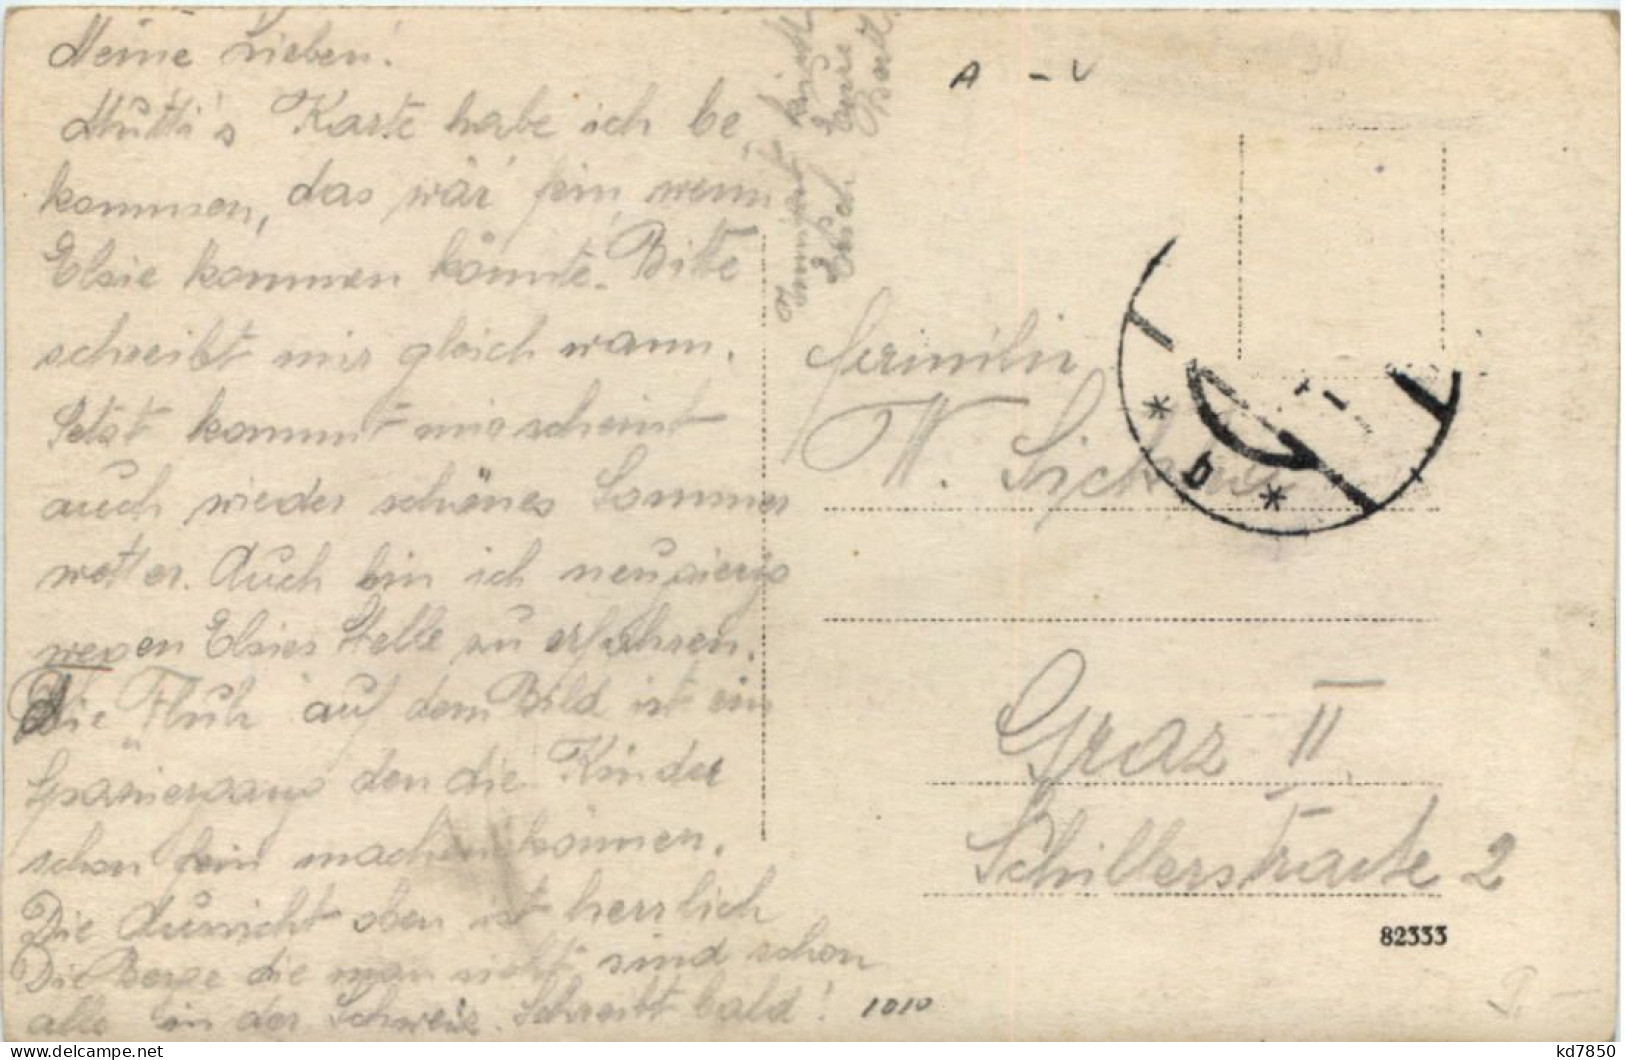 Meine Lieben!
Mutti's Karte habe ich be,
kommen, das wär' fein, wenn
Elsie kommen könnte. Bitte
schreibt mir gleich wann.
Jetzt kommt mir scheint
auch wieder schönes Sommer
wetter. Auch bin ich neugierig
wegen Elsies Stelle zu erfahren.
Die "Fluh" auf dem Bild ist ein
Spaziergang den die Kinder
schon fein machen können.
Die Aussicht oben ist herrlich
Die Berge die man sieht sind schon
alle in der Schweiz. Schreibt bald!
1010
Euch Eure
A - V
Familie
W.
Graz II
Schillerstraße 2
b
82333
kd7850